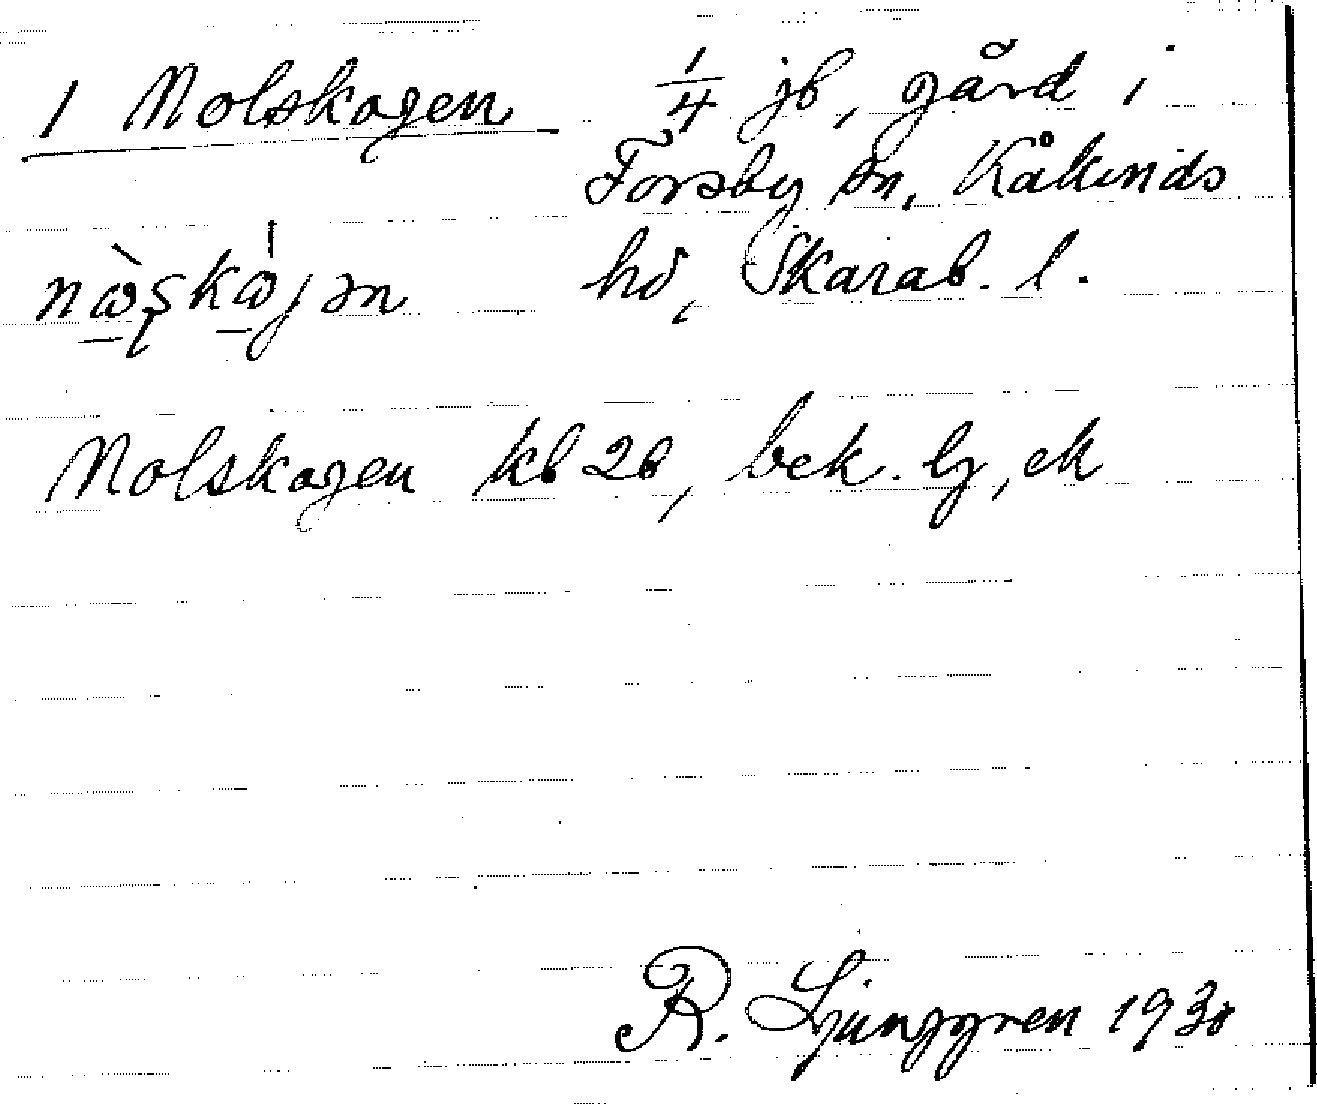 1 Nolskogen 1/4 jb, gård i
Forsby sn, Kåkinds
hd, Skarab. l.
Nolskogen kb 2b, bek. lj, ek
R. Ljunggren 1930